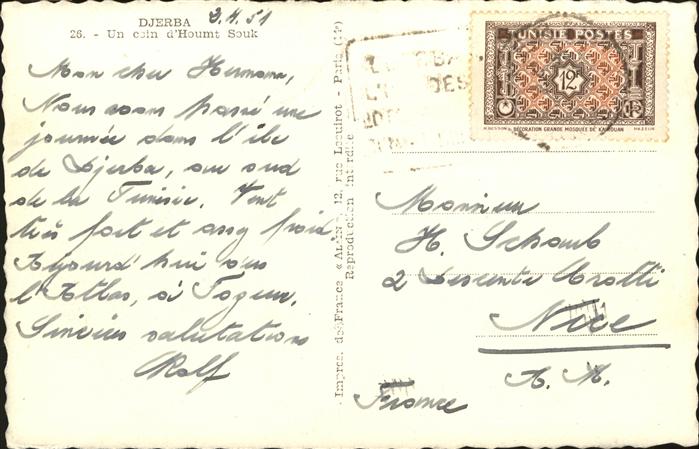 DJERBA
26. - Un coin d'Houmt Souk
2.4.51
Mon cher Hermann,
Nous avons passé une
journée dans l'île
de Djerba, au sud
de la Tunisie. Vent
très fort et assez froid
Aujourd'hui vers
l'Atlas, à Tozeur.
Sincères salutations
Rolf
Impres. de France « ALPIN », 12, rue Lequirot - Paris
Reproduction interdite
TUNISIE POSTES
12F
DÉCORATION GRANDE MOSQUÉE DE KAIROUAN
Monsieur
H. Schaub
2 Descente Crotti
Nice
A. M.
France